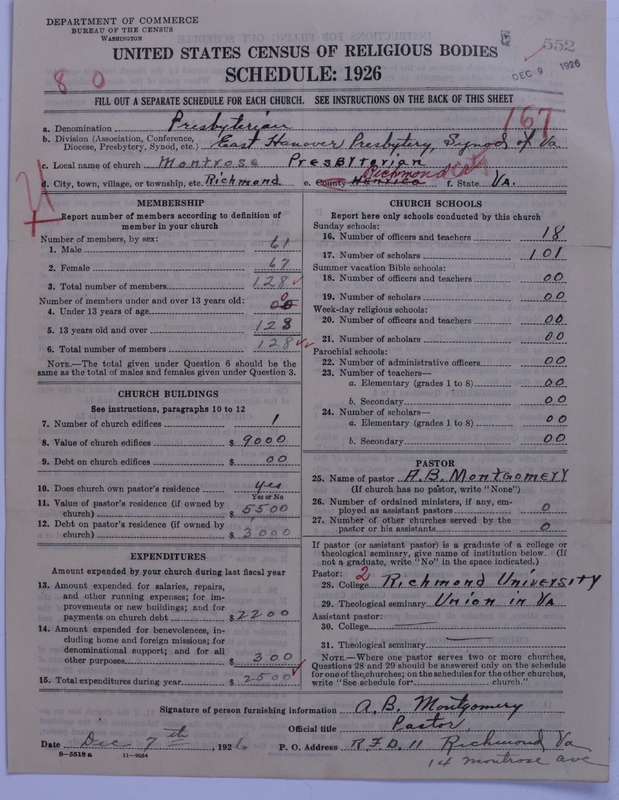 DEPARTMENT OF COMMERCE
BUREAU OF THE CENSUS
WASHINGTON
UNITED STATES CENSUS OF RELIGIOUS BODIES
552
DEC 9 1926
SCHEDULE: 1926
8 0
FILL OUT A SEPARATE SCHEDULE FOR EACH CHURCH. SEE INSTRUCTIONS ON THE BACK OF THIS SHEET
167
a. Denomination Presbyterian
b. Division (Association, Conference, Diocese, Presbytery, Synod, etc.) East Hanover Presbytery, Synod of Va
c. Local name of church Montrose Presbyterian
Richmond City
d. City, town, village, or township, etc. Richmond e. County Henrico f. State VA.
21
MEMBERSHIP
Report number of members according to definition of member in your church
Number of members, by sex:
1. Male 61
2. Female 67
3. Total number of members 128
Number of members under and over 13 years old:
4. Under 13 years of age 0
5. 13 years old and over 128
6. Total number of members 128
NOTE.—The total given under Question 6 should be the same as the total of males and females given under Question 3.
CHURCH BUILDINGS
See instructions, paragraphs 10 to 12
7. Number of church edifices 1
8. Value of church edifices $ 9000
9. Debt on church edifices $ 00
10. Does church own pastor's residence yes
Yes or No
11. Value of pastor's residence (if owned by church) $ 5500
12. Debt on pastor's residence (if owned by church) $ 3000
EXPENDITURES
Amount expended by your church during last fiscal year
13. Amount expended for salaries, repairs, and other running expenses; for improvements or new buildings; and for payments on church debt $ 2200
14. Amount expended for benevolences, including home and foreign missions; for denominational support; and for all other purposes $ 300
15. Total expenditures during year $ 2500
CHURCH SCHOOLS
Report here only schools conducted by this church
Sunday schools:
16. Number of officers and teachers 18
17. Number of scholars 101
Summer vacation Bible schools:
18. Number of officers and teachers 00
19. Number of scholars 00
Week-day religious schools:
20. Number of officers and teachers 00
21. Number of scholars 00
Parochial schools:
22. Number of administrative officers 00
23. Number of teachers—
a. Elementary (grades 1 to 8) 00
b. Secondary 00
24. Number of scholars—
a. Elementary (grades 1 to 8) 00
b. Secondary 00
PASTOR
25. Name of pastor A.B. Montgomery
(If church has no pastor, write "None")
26. Number of ordained ministers, if any, employed as assistant pastors 0
27. Number of other churches served by the pastor or his assistants 0
If pastor (or assistant pastor) is a graduate of a college or theological seminary, give name of institution below. (If not a graduate, write "No" in the space indicated.)
Pastor: 2
28. College Richmond University
29. Theological seminary Union in Va
Assistant pastor:
30. College
31. Theological seminary
NOTE.—Where one pastor serves two or more churches, Questions 28 and 29 should be answered only on the schedule for one of the churches; on the schedules for the other churches, write "See schedule for church."
Signature of person furnishing information A. B. Montgomery
Official title Pastor
Date Dec 7th, 1926 P. O. Address R.F.D. 11 Richmond Va
8—5518 a 11—9084
14 montrose ave